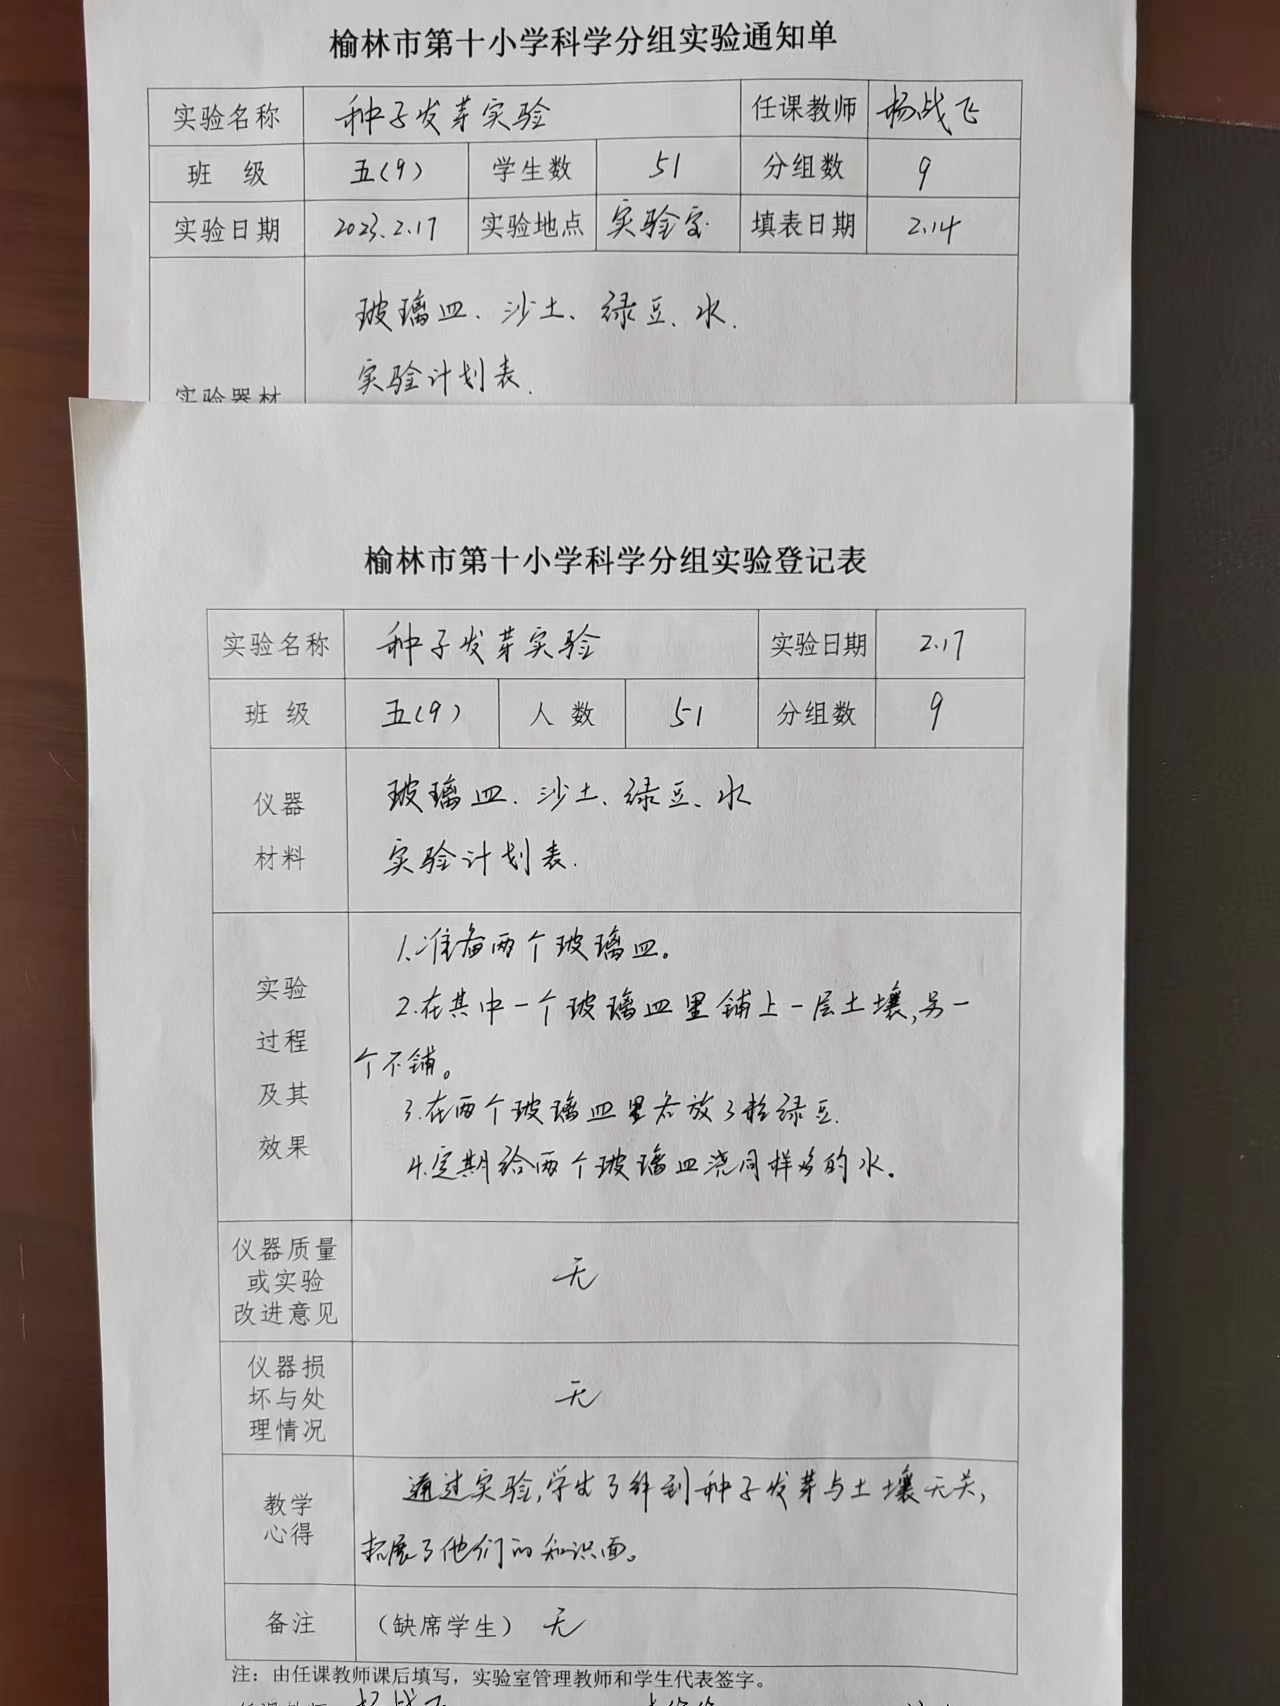 榆林市第十小学科学分组实验通知单
实验名称 种子发芽实验 任课教师 杨战飞
班 级 五(9) 学生数 51 分组数 9
实验日期 2023.2.17 实验地点 实验室 填表日期 2.14
玻璃皿、沙土、绿豆、水.
实验计划表.
实验器材
榆林市第十小学科学分组实验登记表
实验名称 种子发芽实验 实验日期 2.17
班 级 五(9) 人 数 51 分组数 9
仪器
材料
玻璃皿、沙土、绿豆、水
实验计划表.
实验
过程
及其
效果
1.准备两个玻璃皿。
2.在其中一个玻璃皿里铺上一层土壤,另一
个不铺。
3.在两个玻璃皿里各放3粒绿豆.
4.定期给两个玻璃皿浇同样多的水.
仪器质量
或实验
改进意见
无
仪器损
坏与处
理情况
无
教学
心得
通过实验,学生了解到种子发芽与土壤无关,
拓展了他们的知识面。
备注 (缺席学生) 无
注：由任课教师课后填写，实验室管理教师和学生代表签字。
任课教师 杨战飞